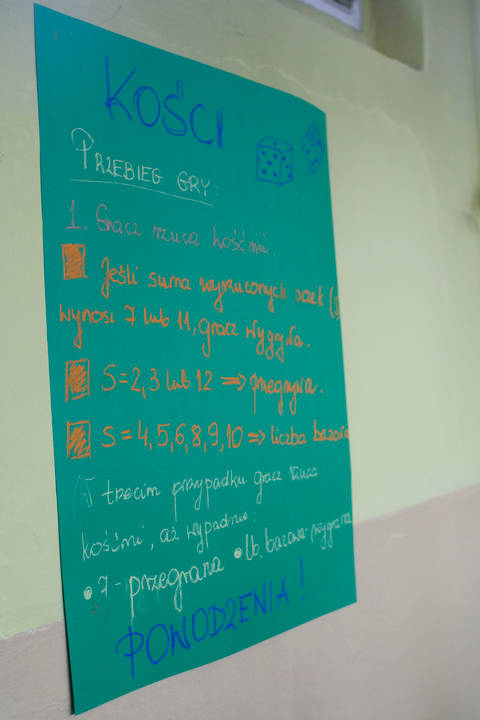 KOŚCI
PRZEBIEG GRY:
1. Gracz rzuca kośćmi.
Jeśli suma wyrzuconych oczek (S)
wynosi 7 lub 11, gracz wygrywa.
S=2,3 lub 12 => przegrywa.
S=4,5,6,8,9,10 => liczba bazowa
W trzecim przypadku gracz rzuca
kośćmi, aż wypadnie:
• 7 - przegrana • lb. bazowa - wygrana
POWODZENIA!